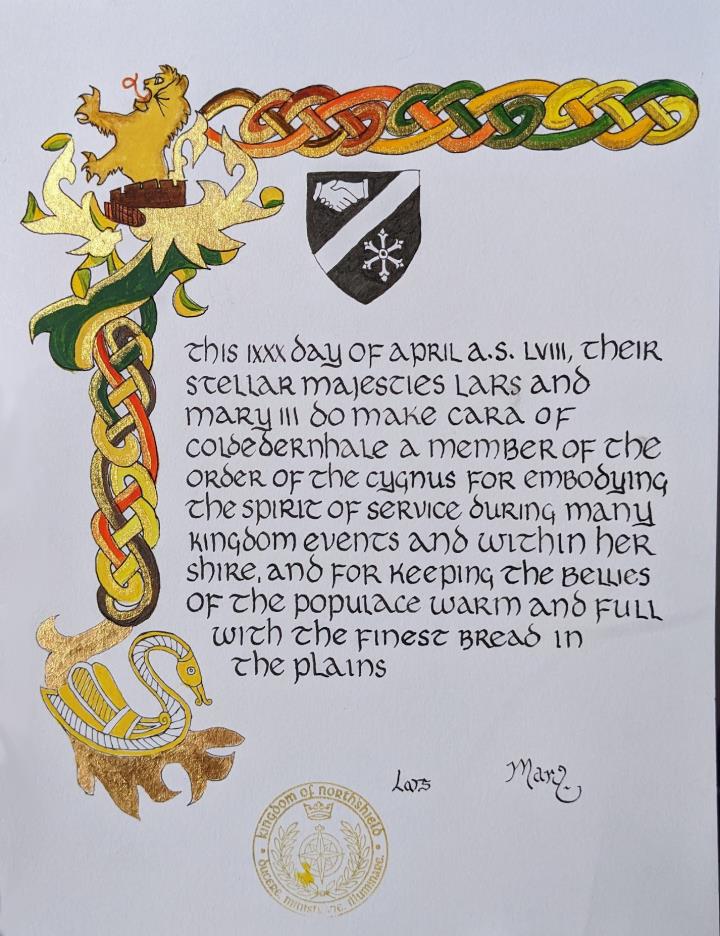 This IXXX day of April A.S. LVIII, Their
Stellar Majesties Lars and
Mary III do make Cara of
Coldedernhale a member of the
Order of the Cygnus for embodying
the spirit of service during many
Kingdom events and within her
shire, and for keeping the bellies
of the populace warm and full
with the finest bread in
the plains
Lars
Mary
Kingdom of Northshield
Ducere, illuminare.